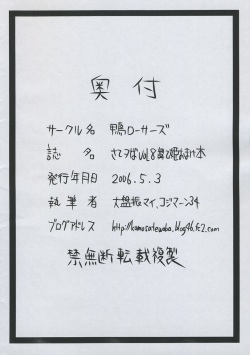 奥付
サークル名 鴨ローサーズ
誌名 さてヲばVol.8 本
発行年月日 2006.5.3
執筆者 大盤振マイ、コジマーン34
ブログアドレス http://kamosatewoba.blog46.fc2.com
禁無断転載複製